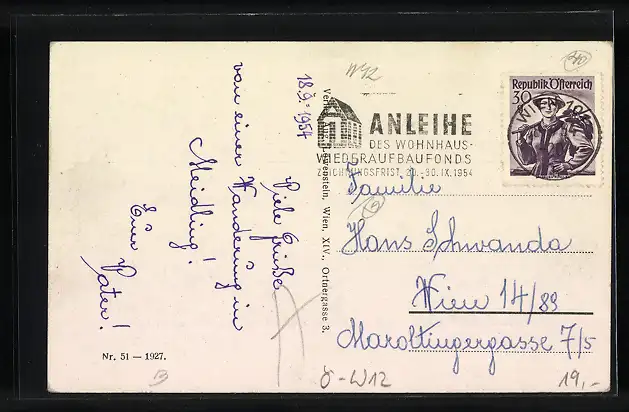 18.9.1954
Viele Grüße
von einer Wanderung in
Meidling!
Euer Vater!
Nr. 51 — 1927.
Wien, XIV., Ortnergasse 3.
W12
ANLEIHE
DES WOHNHAUS-
WIEDERAUFBAUFONDS
ZEICHNUNGSFRIST 20.-30.IX.1954
Republik Österreich
30
WIEN 101
Familie
Hans Schwanda
Wien 14/89
Maroltingergasse 7/5
8-W12
19,-